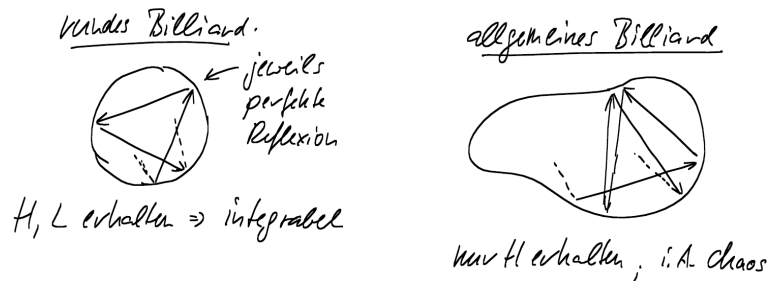 rundes Billiard.
jeweils
perfekte
Reflexion
H, L erhalten ⇒ integrabel
allgemeines Billiard
nur H erhalten, i.A. Chaos